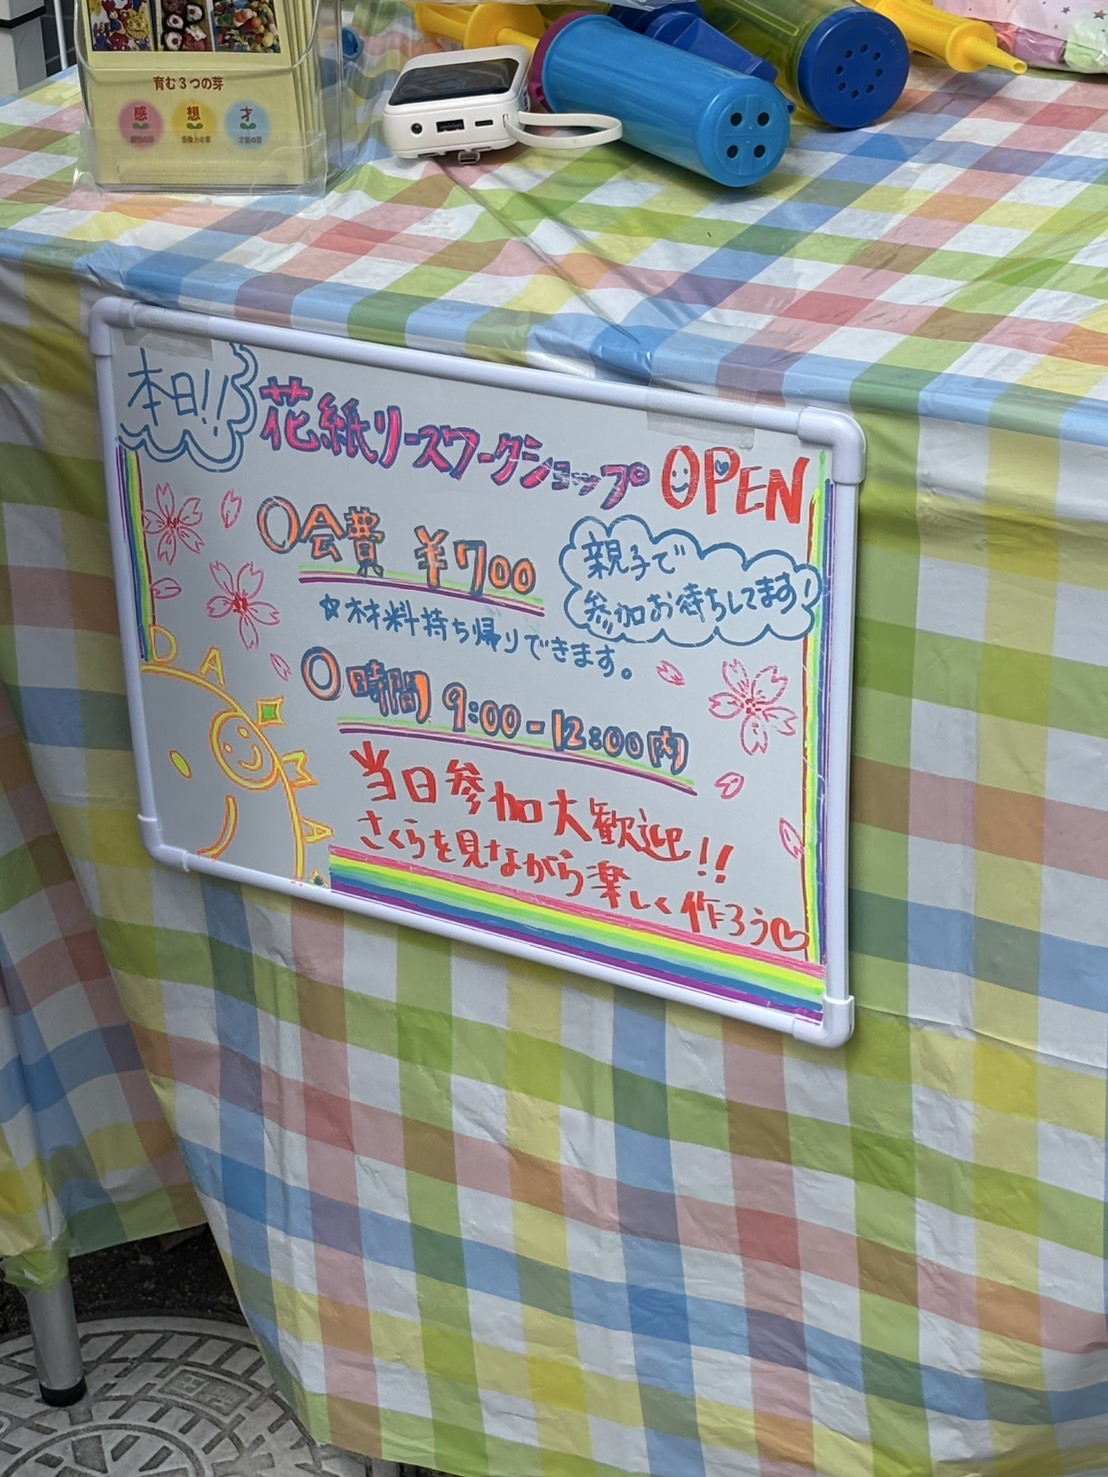 育む3つの芽
感 想 才
本日!!
花紙リースワークショップ OPEN
○会費 ¥700
☆材料持ち帰りできます。
親子で
参加お待ちしてます!
○時間 9:00-12:00内
当日参加大歓迎!!
さくらを見ながら楽しく作ろう♡